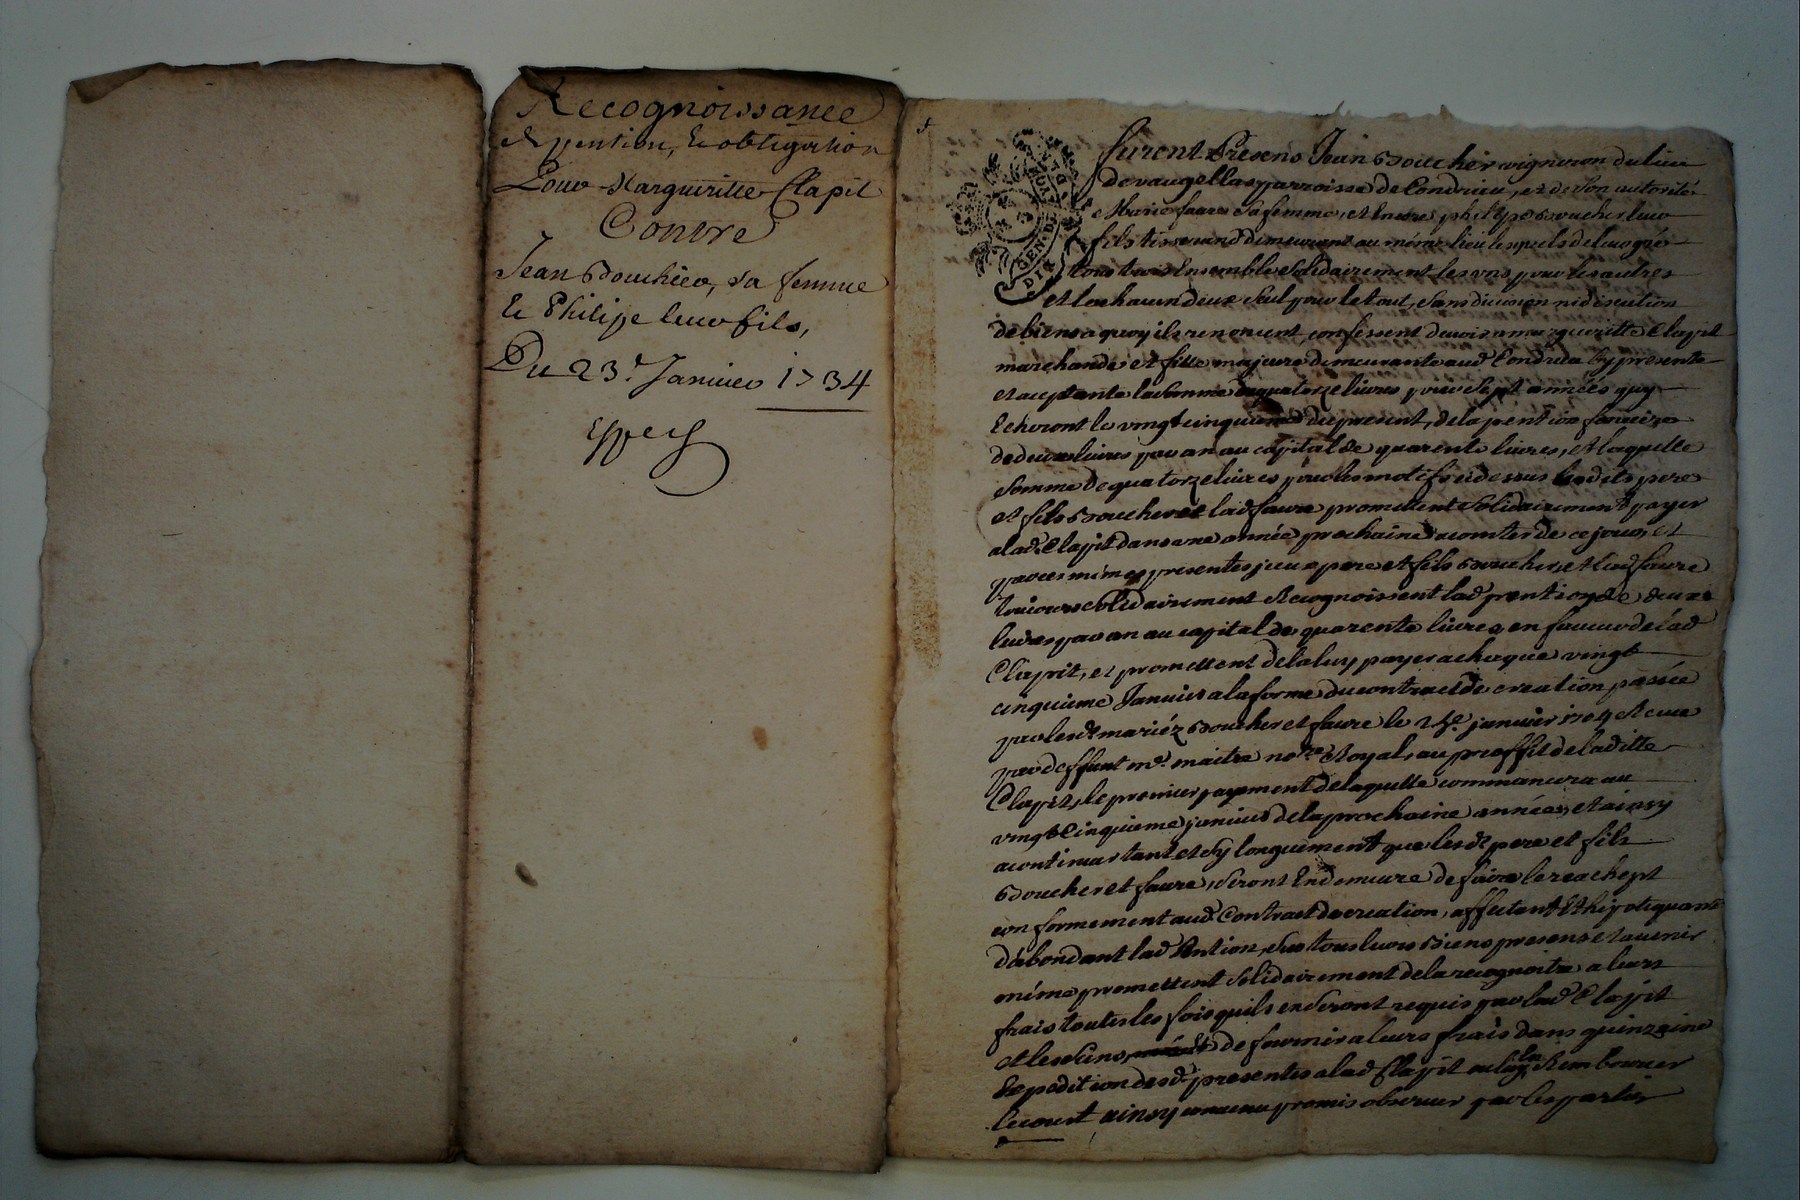 Recognoissance
de pention, et obligation
Pour Margueritte Clapit
Contre
Jean Boucher, sa femme
et Philipe leur fils,
Du 23e. Janvier 1734
Exper
GEN. D
furent Presens Jean Boucher vigneron du lieu
de vaugellas parroisse de Condrieu, et de son autorité
Marie faure sa femme, et encore philipe Boucher leur
fils tisserand demeurant au même lieu lesquels de leur gré
tous trois Ensemble solidairement les uns pour les autres
et un chacun deux seul pour le tout, sans division ni discution
de biens a quoy ils renoncent, confessent devoir a margueritte Clapit
marchande et fille majeure demeurante aud Condrieu Icy presente
et aceptante la somme de quatorze livres pour sept années quy
Echeront le vingt cinquieme du present, de la pention fonciere
de deux livres par an au capital de quarente livres, Et laquelle
somme de quatorze livres pour les motifs cidessus lesdits pere
et fils Boucher et lad faure promettent solidairement payer
a lad. Clapit dans une année prochaine a comter de ce jour, et
par ces mêmes presentes iceux pere et fils Boucher, et lad faure
toujours solidairement Recognoissent lad pention de deux
livres par an au capital de quarente livres, en faveur de lad
Clapit, et promettent de la luy payer a chaque vingt
cinquieme Janvier a la forme du contract de creation passée
par lesd mariéz Boucher et faure le 25e. janvier 1704 Receue
par deffunt me. maitre nore Royal, au proffit de laditte
Clapit, le premier payement de laquelle commancera au
vingt Cinquieme janvier de la prochaine année, et ainsy
a continuer tant et sy longuement que lesd pere et fils
Boucher et faure, seront En demeure de faire le reachept
conformement aud Contract de creation, affectant Et hipotequant
dabondant lad Pention, sur tous leurs Biens presens et avenir
même promettent solidairement de la recognoitre a leurs
frais toutes les fois quils en seront requis par lad Clapit
et les siens, de fournir a leurs frais dans quinzaine
Expedition desd. presentes a lad Clapit ou luy en Rembourcer
le cout ainsy convenu promis observer par les parties